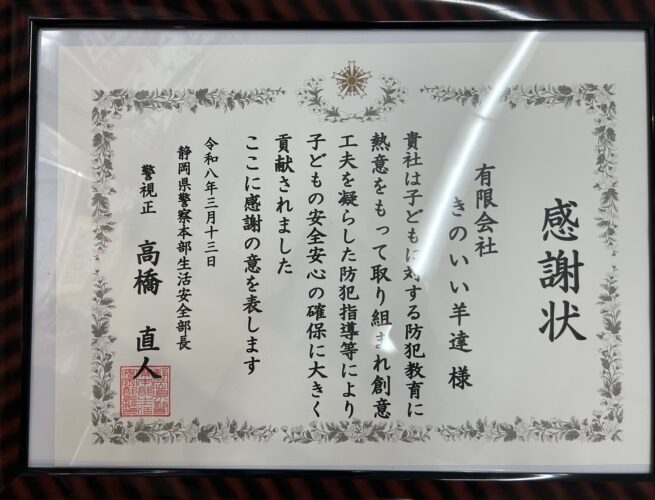 感謝状
有限会社
きのいい羊達 様
貴社は子どもに対する防犯教育に
熱意をもって取り組まれ創意
工夫を凝らした防犯指導等により
子どもの安全安心の確保に大きく
貢献されました
ここに感謝の意を表します
令和八年三月十三日
静岡県警察本部生活安全部長
警視正 高橋 直人